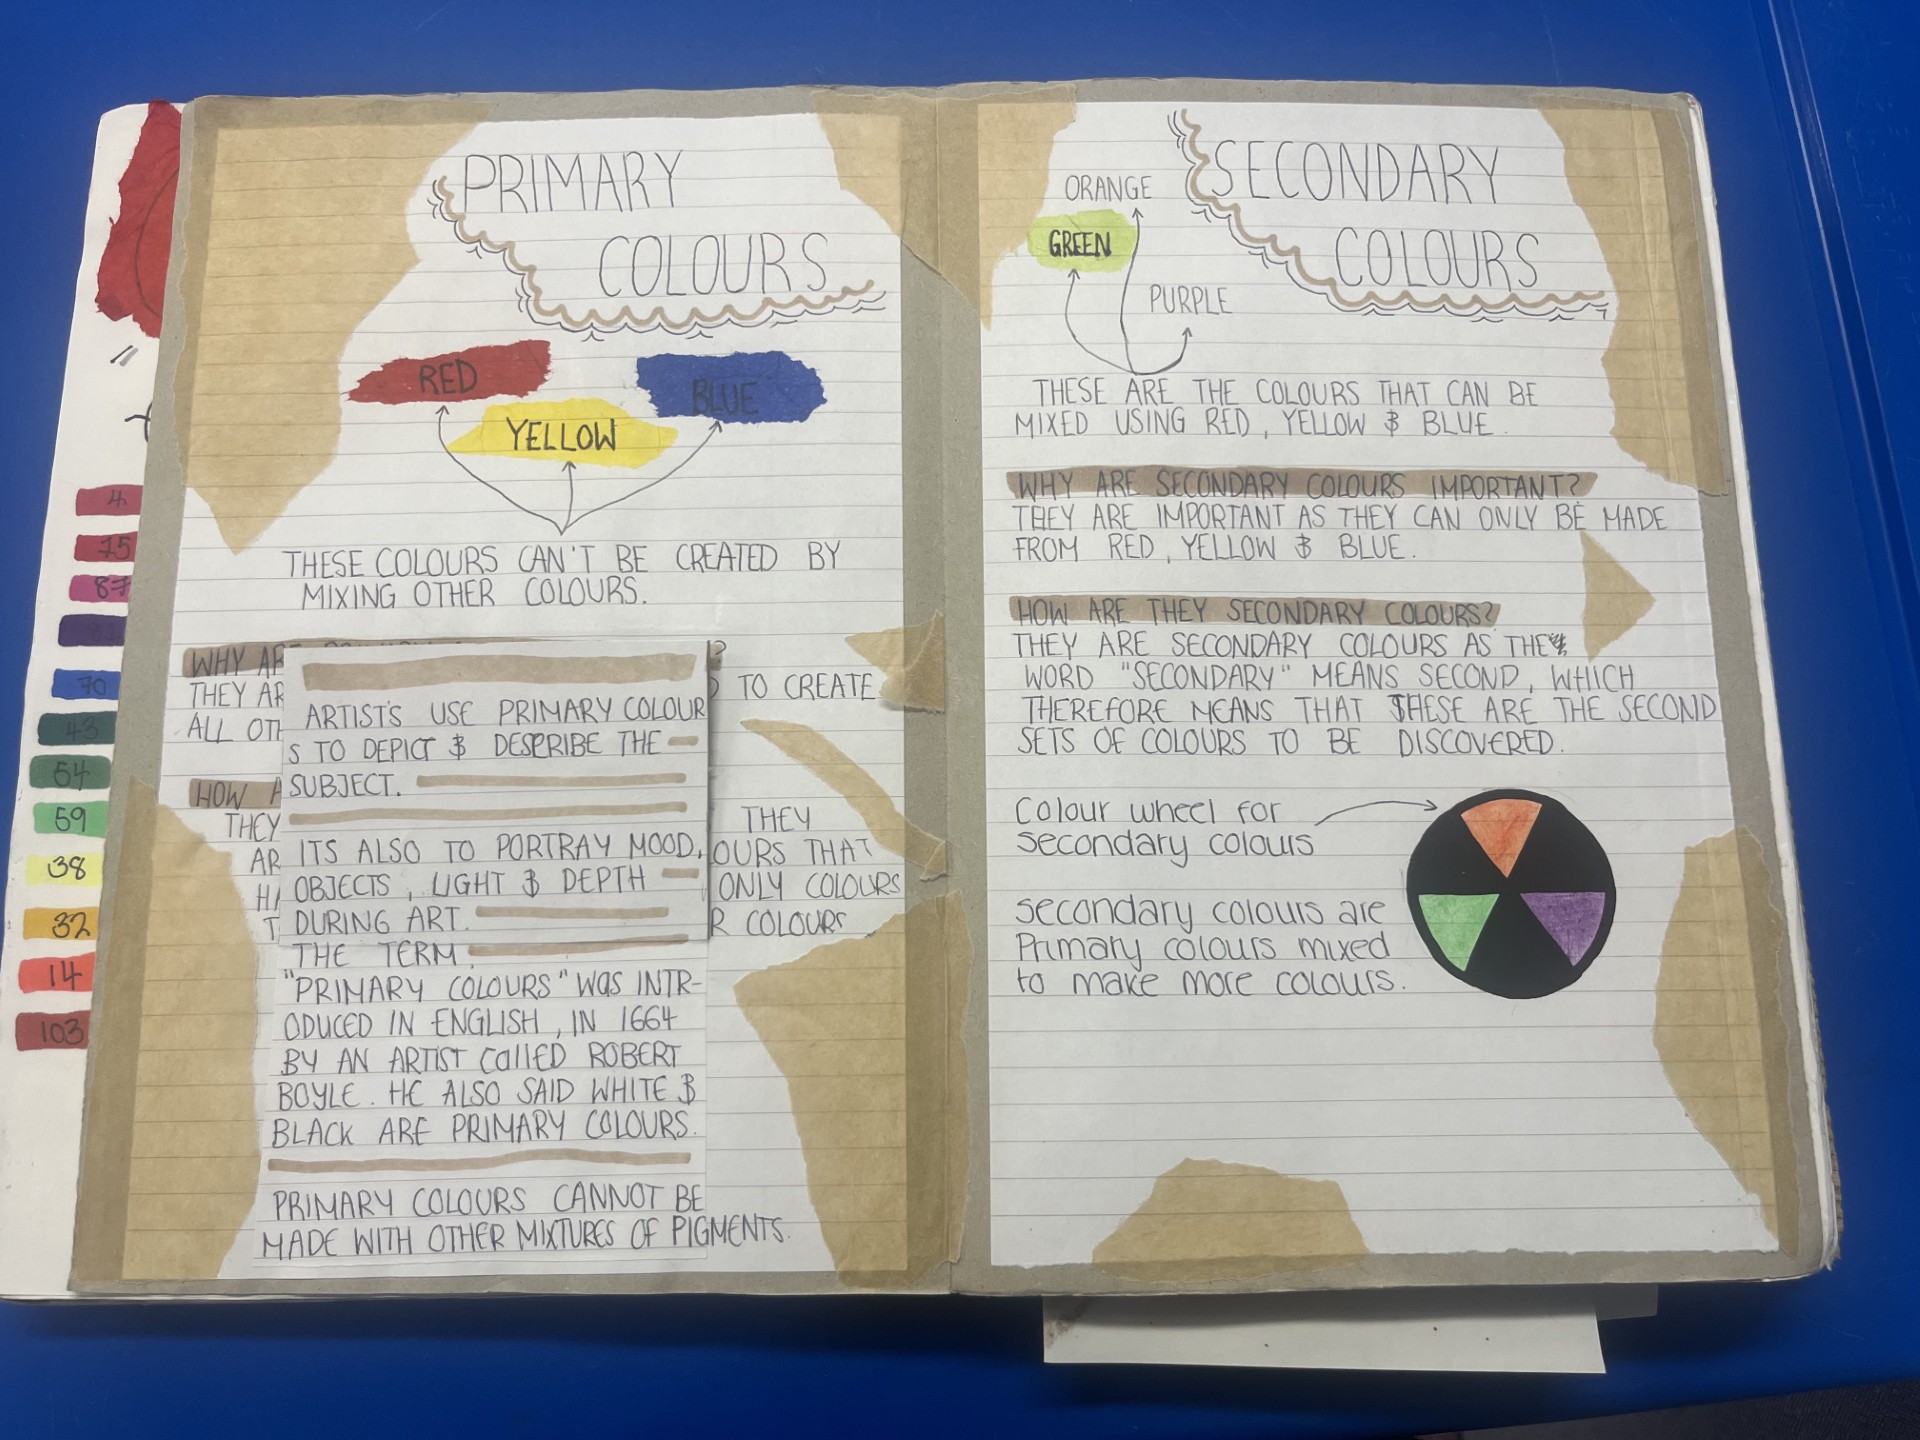 PRIMARY
COLOURS
RED
BLUE
YELLOW
THESE COLOURS CAN'T BE CREATED BY
MIXING OTHER COLOURS.
WHY ARE
?
THEY AR
TO CREATE
ALL OTH
HOW A
THEY
THEY
AR
OURS THAT
ONLY COLOURS
R COLOURS
ARTIST'S USE PRIMARY COLOUR
S TO DEPICT & DESCRIBE THE
SUBJECT.
ITS ALSO TO PORTRAY MOOD,
OBJECTS, LIGHT & DEPTH
DURING ART.
THE TERM
"PRIMARY COLOURS" WAS INTR-
ODUCED IN ENGLISH, IN 1664
BY AN ARTIST CALLED ROBERT
BOYLE. HE ALSO SAID WHITE &
BLACK ARE PRIMARY COLOURS.
PRIMARY COLOURS CANNOT BE
MADE WITH OTHER MIXTURES OF PIGMENTS.
4
75
87
70
43
54
59
38
32
14
103
SECONDARY
COLOURS
ORANGE
GREEN
PURPLE
THESE ARE THE COLOURS THAT CAN BE
MIXED USING RED, YELLOW & BLUE.
WHY ARE SECONDARY COLOURS IMPORTANT?
THEY ARE IMPORTANT AS THEY CAN ONLY BE MADE
FROM RED, YELLOW & BLUE.
HOW ARE THEY SECONDARY COLOURS?
THEY ARE SECONDARY COLOURS AS THE
WORD "SECONDARY" MEANS SECOND, WHICH
THEREFORE MEANS THAT THESE ARE THE SECOND
SETS OF COLOURS TO BE DISCOVERED.
Colour wheel for
secondary colours
secondary colours are
Primary colours mixed
to make more colours.